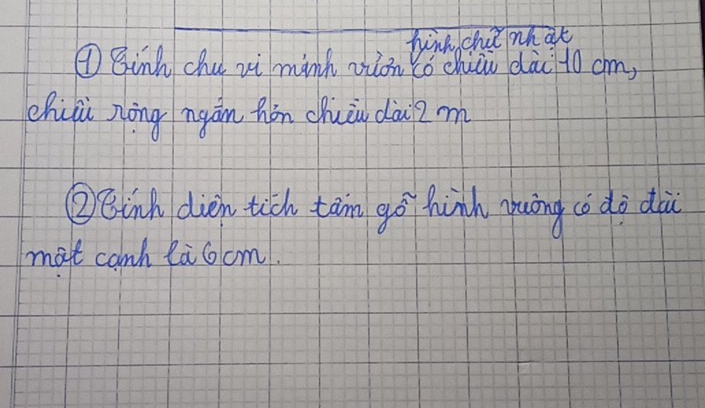 ① Tính chu vi mảnh vườn hình chữ nhật có chiều dài 10 cm,
chiều rộng ngắn hơn chiều dài 2 m
② Tính diện tích tấm gỗ hình vuông có độ dài
một cạnh là 6 cm.